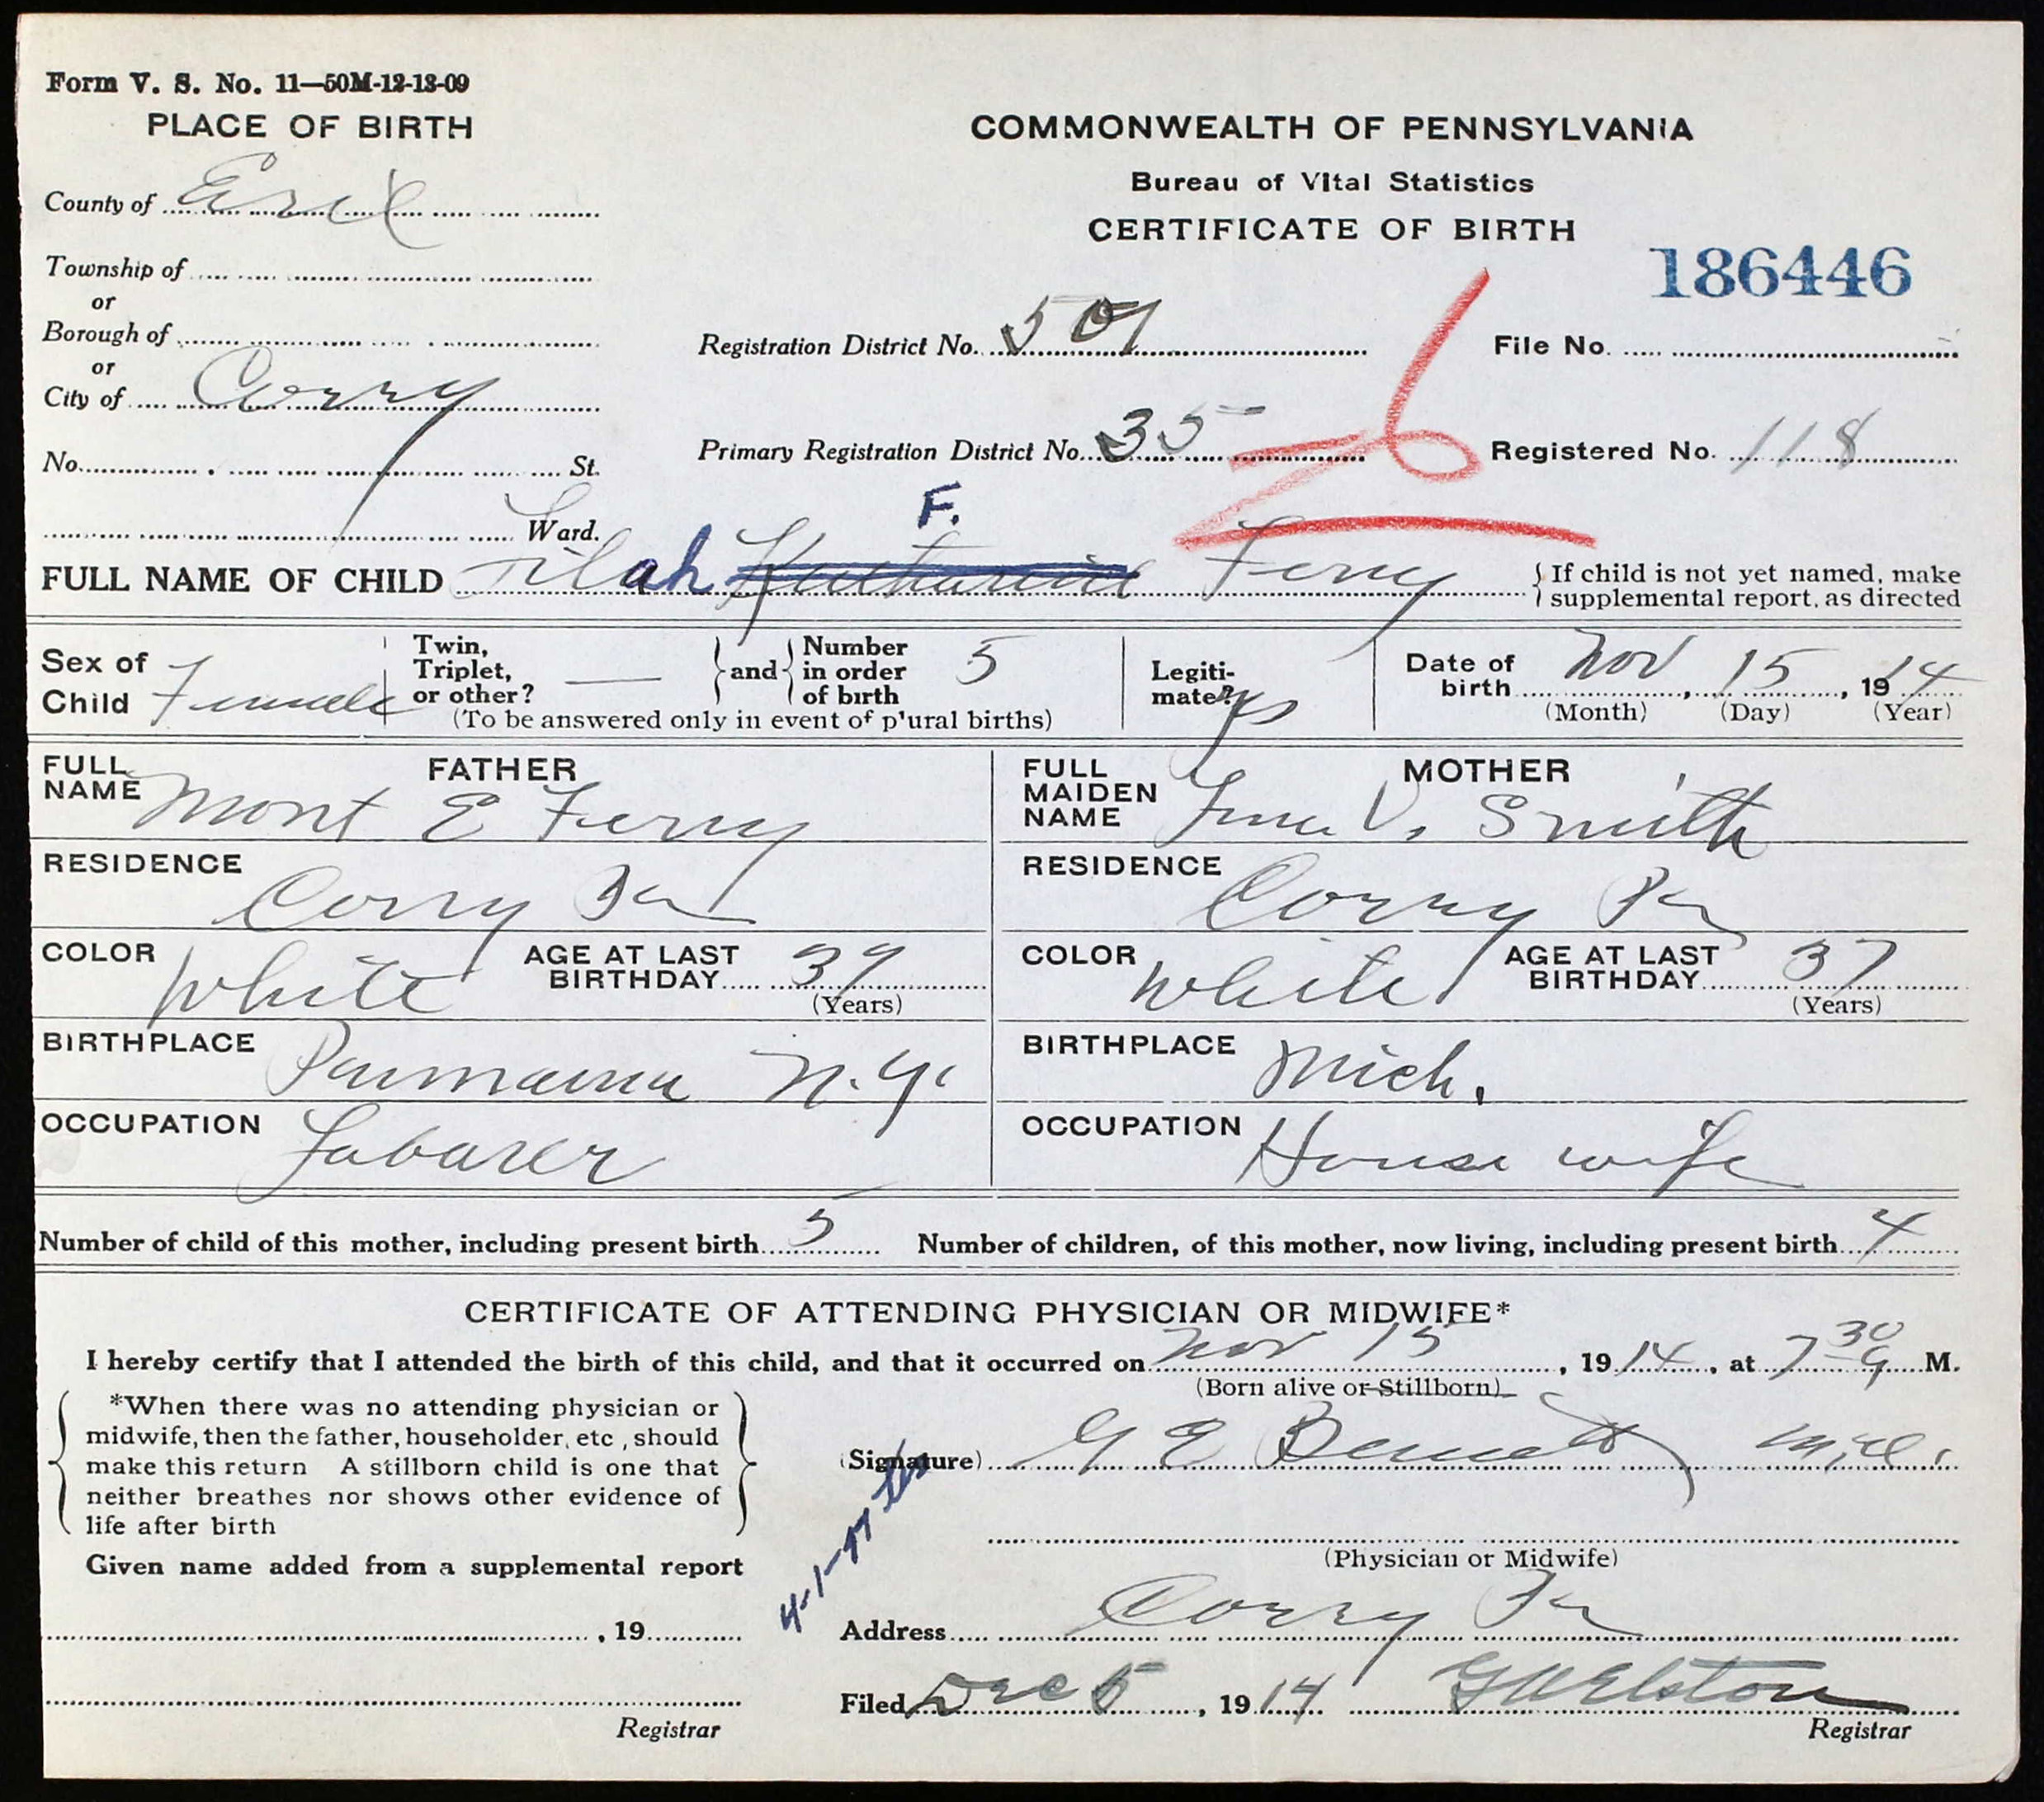 Form V. S. No. 11—50M-12-13-09
PLACE OF BIRTH
County of Erie
Township of
or
Borough of
or
City of Corry
No. St.
Ward.
COMMONWEALTH OF PENNSYLVANIA
Bureau of Vital Statistics
CERTIFICATE OF BIRTH
186446
Registration District No. 501
File No.
Primary Registration District No. 35
Registered No. 118
6
F.
FULL NAME OF CHILD Filah Katharine Ferry
{ If child is not yet named, make
supplemental report, as directed
Sex of Child Female
Twin, Triplet, or other? —
and
Number in order of birth 5
(To be answered only in event of p'ural births)
Legiti-mate? yes
Date of birth Nov, 15, 1914
(Month) (Day) (Year)
FATHER
FULL NAME Mont E Ferry
RESIDENCE Corry Pa
COLOR White AGE AT LAST BIRTHDAY 39
(Years)
BIRTHPLACE N.Y.
OCCUPATION Laborer
MOTHER
FULL MAIDEN NAME V. Smith
RESIDENCE Corry Pa
COLOR White AGE AT LAST BIRTHDAY 37
(Years)
BIRTHPLACE Mich.
OCCUPATION House wife
Number of child of this mother, including present birth 5 Number of children, of this mother, now living, including present birth 4
CERTIFICATE OF ATTENDING PHYSICIAN OR MIDWIFE*
I hereby certify that I attended the birth of this child, and that it occurred on Nov 15, 1914, at 7 30 a M.
(Born alive or Stillborn)
*When there was no attending physician or
midwife, then the father, householder, etc , should
make this return A stillborn child is one that
neither breathes nor shows other evidence of
life after birth
Given name added from a supplemental report
, 19
Registrar
(Signature) G E Bennett M.D.
(Physician or Midwife)
4-1-47
Address Corry Pa
Filed Dec 5, 1914 G W Elston
Registrar